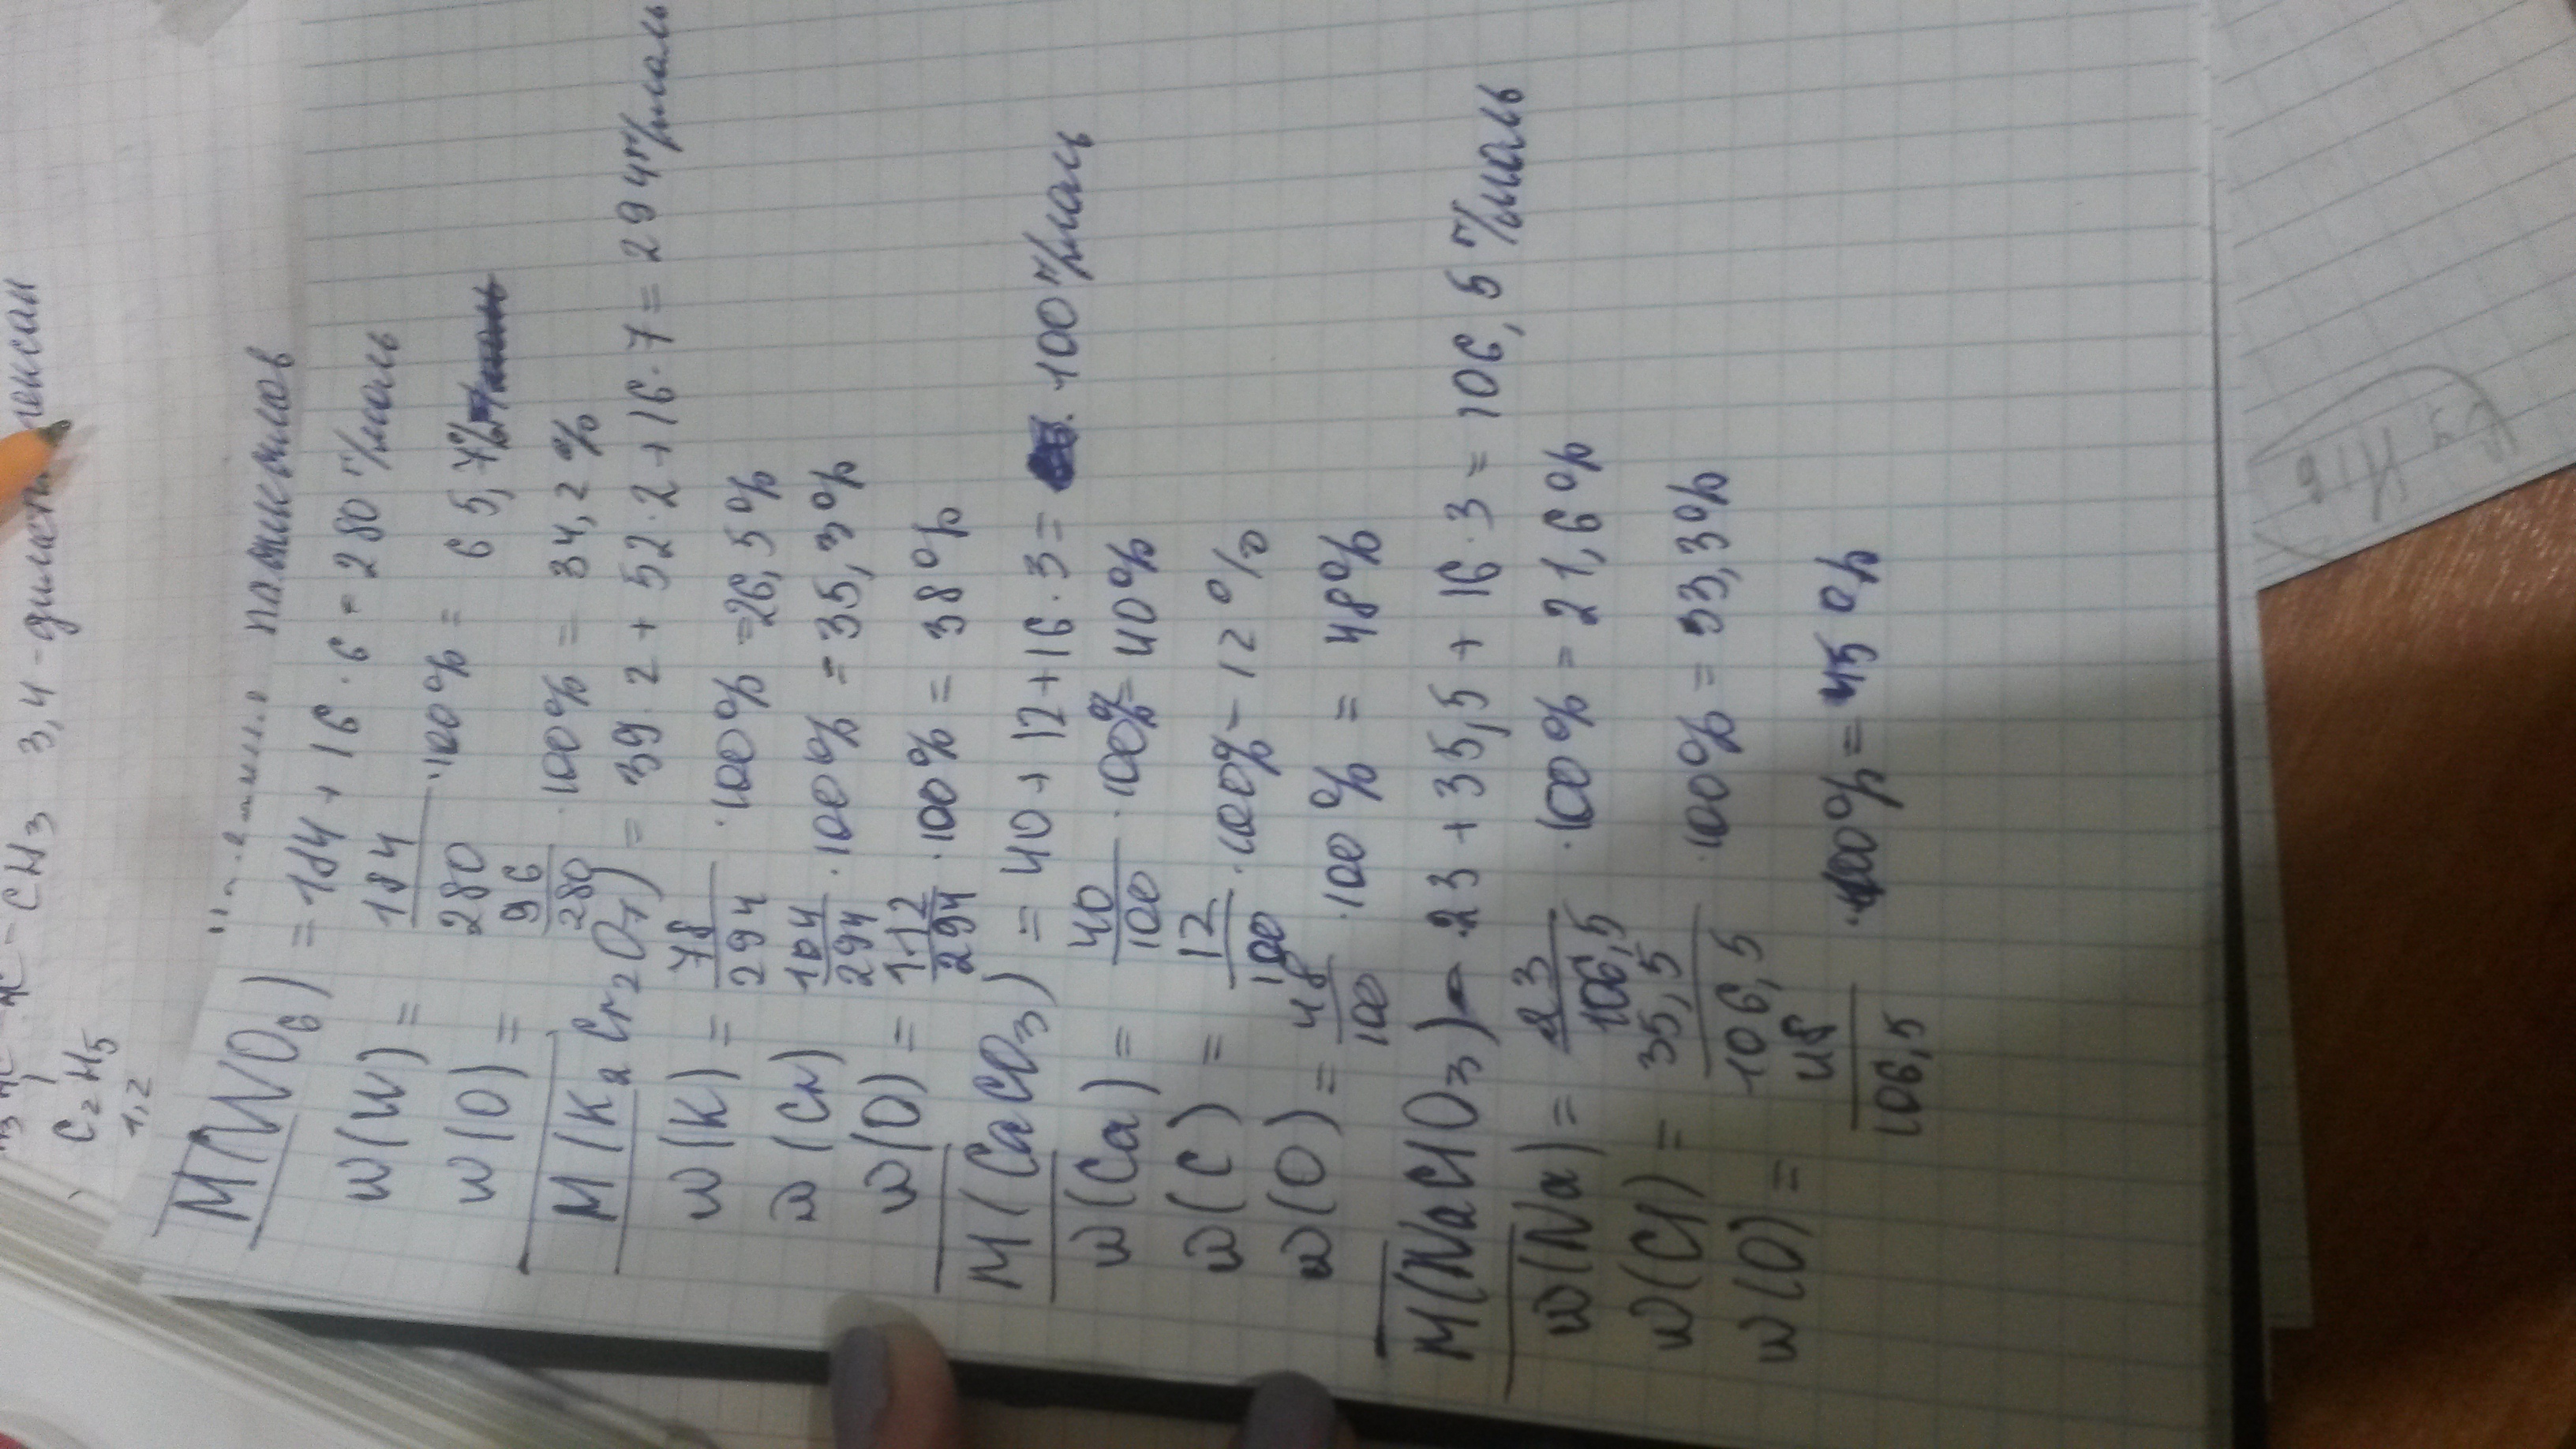 CH3 3,4-
C2H5
1,2
M(WO6) = 184 + 16 · 6 = 280 г/моль
w(W) = 184/280 · 100% = 65,7%
w(O) = 96/280 · 100% = 34,2%
M(K2Cr2O7) = 39·2 + 52·2 + 16·7 = 294 г/моль
w(K) = 78/294 · 100% = 26,5%
w(Cr) 104/294 · 100% = 35,3%
w(O) = 112/294 · 100% = 38%
M(CaCO3) = 40 + 12 + 16·3 = 100 г/моль
w(Ca) = 40/100 · 100% = 40%
w(C) = 12/100 · 100% - 12%
w(O) = 48/100 · 100% = 48%
M(NaClO3) - 23 + 35,5 + 16·3 = 106,5 г/моль
w(Na) = 23/106,5 · 100% = 21,6%
w(Cl) = 35,5/106,5 · 100% = 33,3%
w(O) = 48/106,5 · 100% = 45%